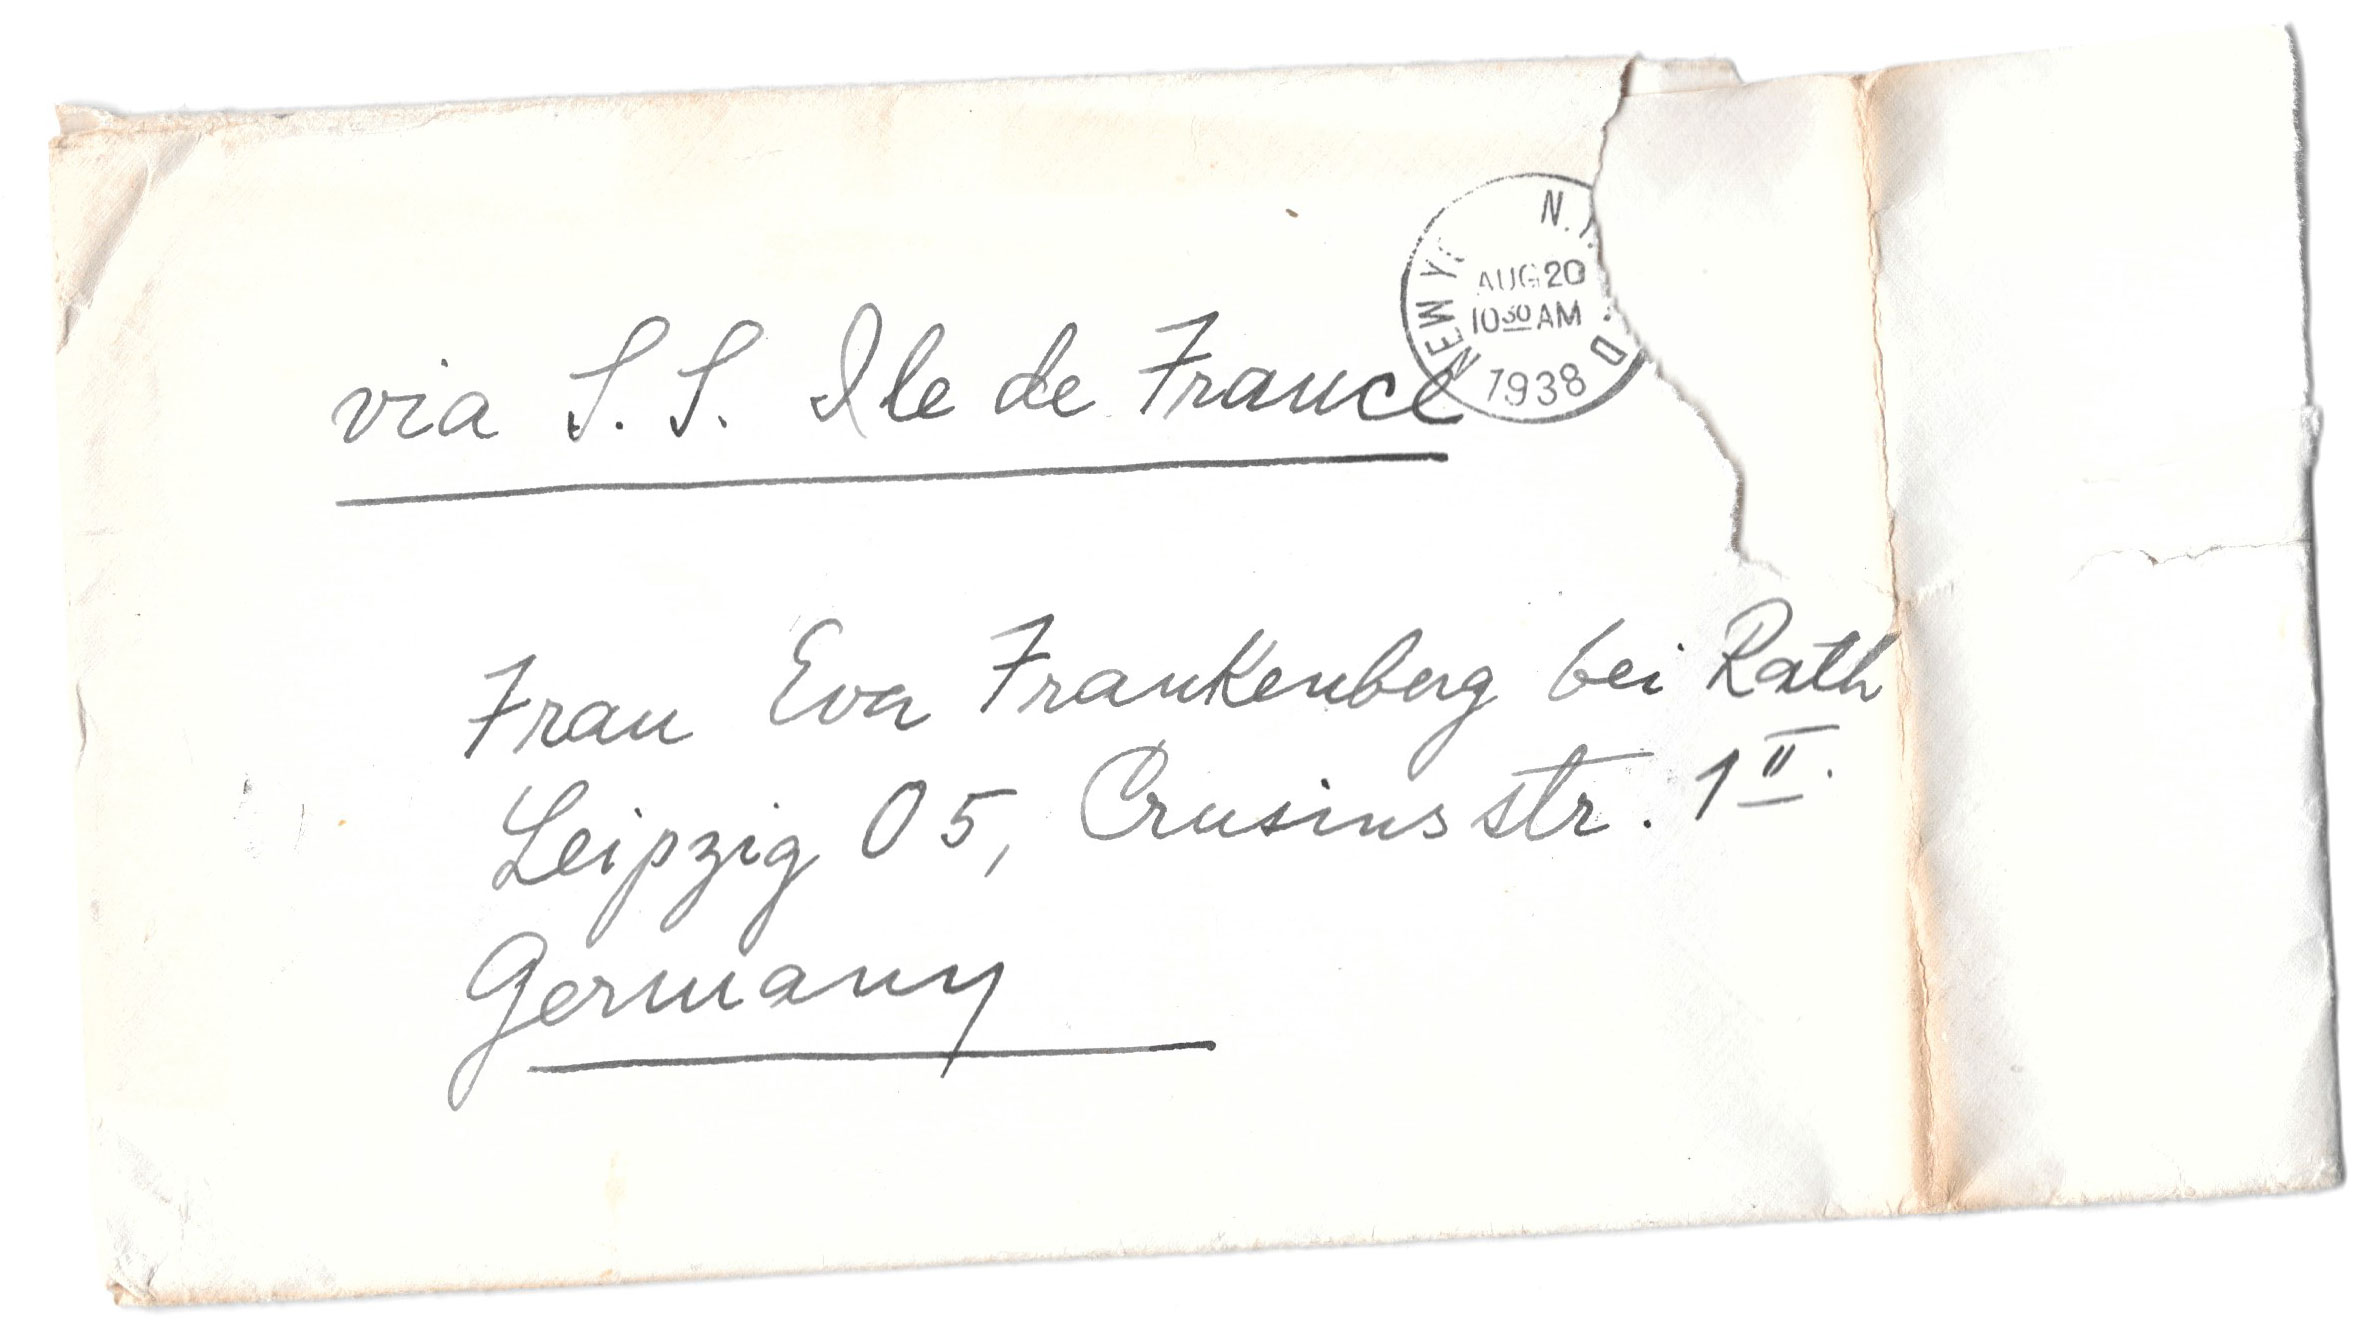 NEW Y N.Y.
D
AUG 20
10 30 AM
1938
via S. S. Ile de France
Frau Eva Frankenberg bei Rath
Leipzig O5, Crusiusstr. 1 II.
Germany